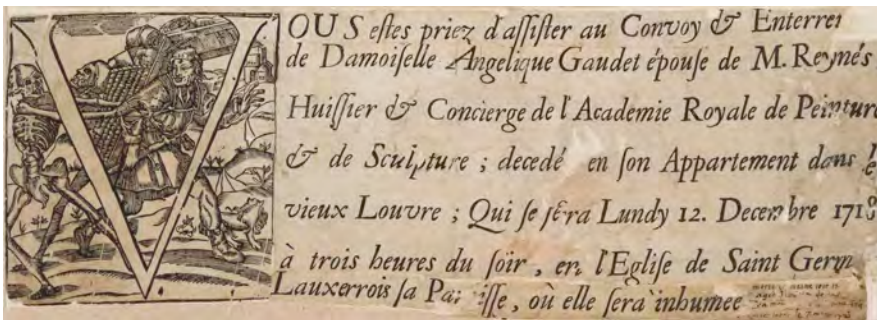 VOUS estes priez d'assister au Convoy & Enterrei
de Damoiselle Angelique Gaudet épouse de M. Reynés
Huissier & Concierge de l'Academie Royale de Peinture
& de Sculpture ; decedé en son Appartement dans le
vieux Louvre ; Qui se fera Lundy 12. Decembre 1718
à trois heures du soir, en l'Eglise de Saint Germ
Lauxerrois sa Paroisse, où elle sera inhumee